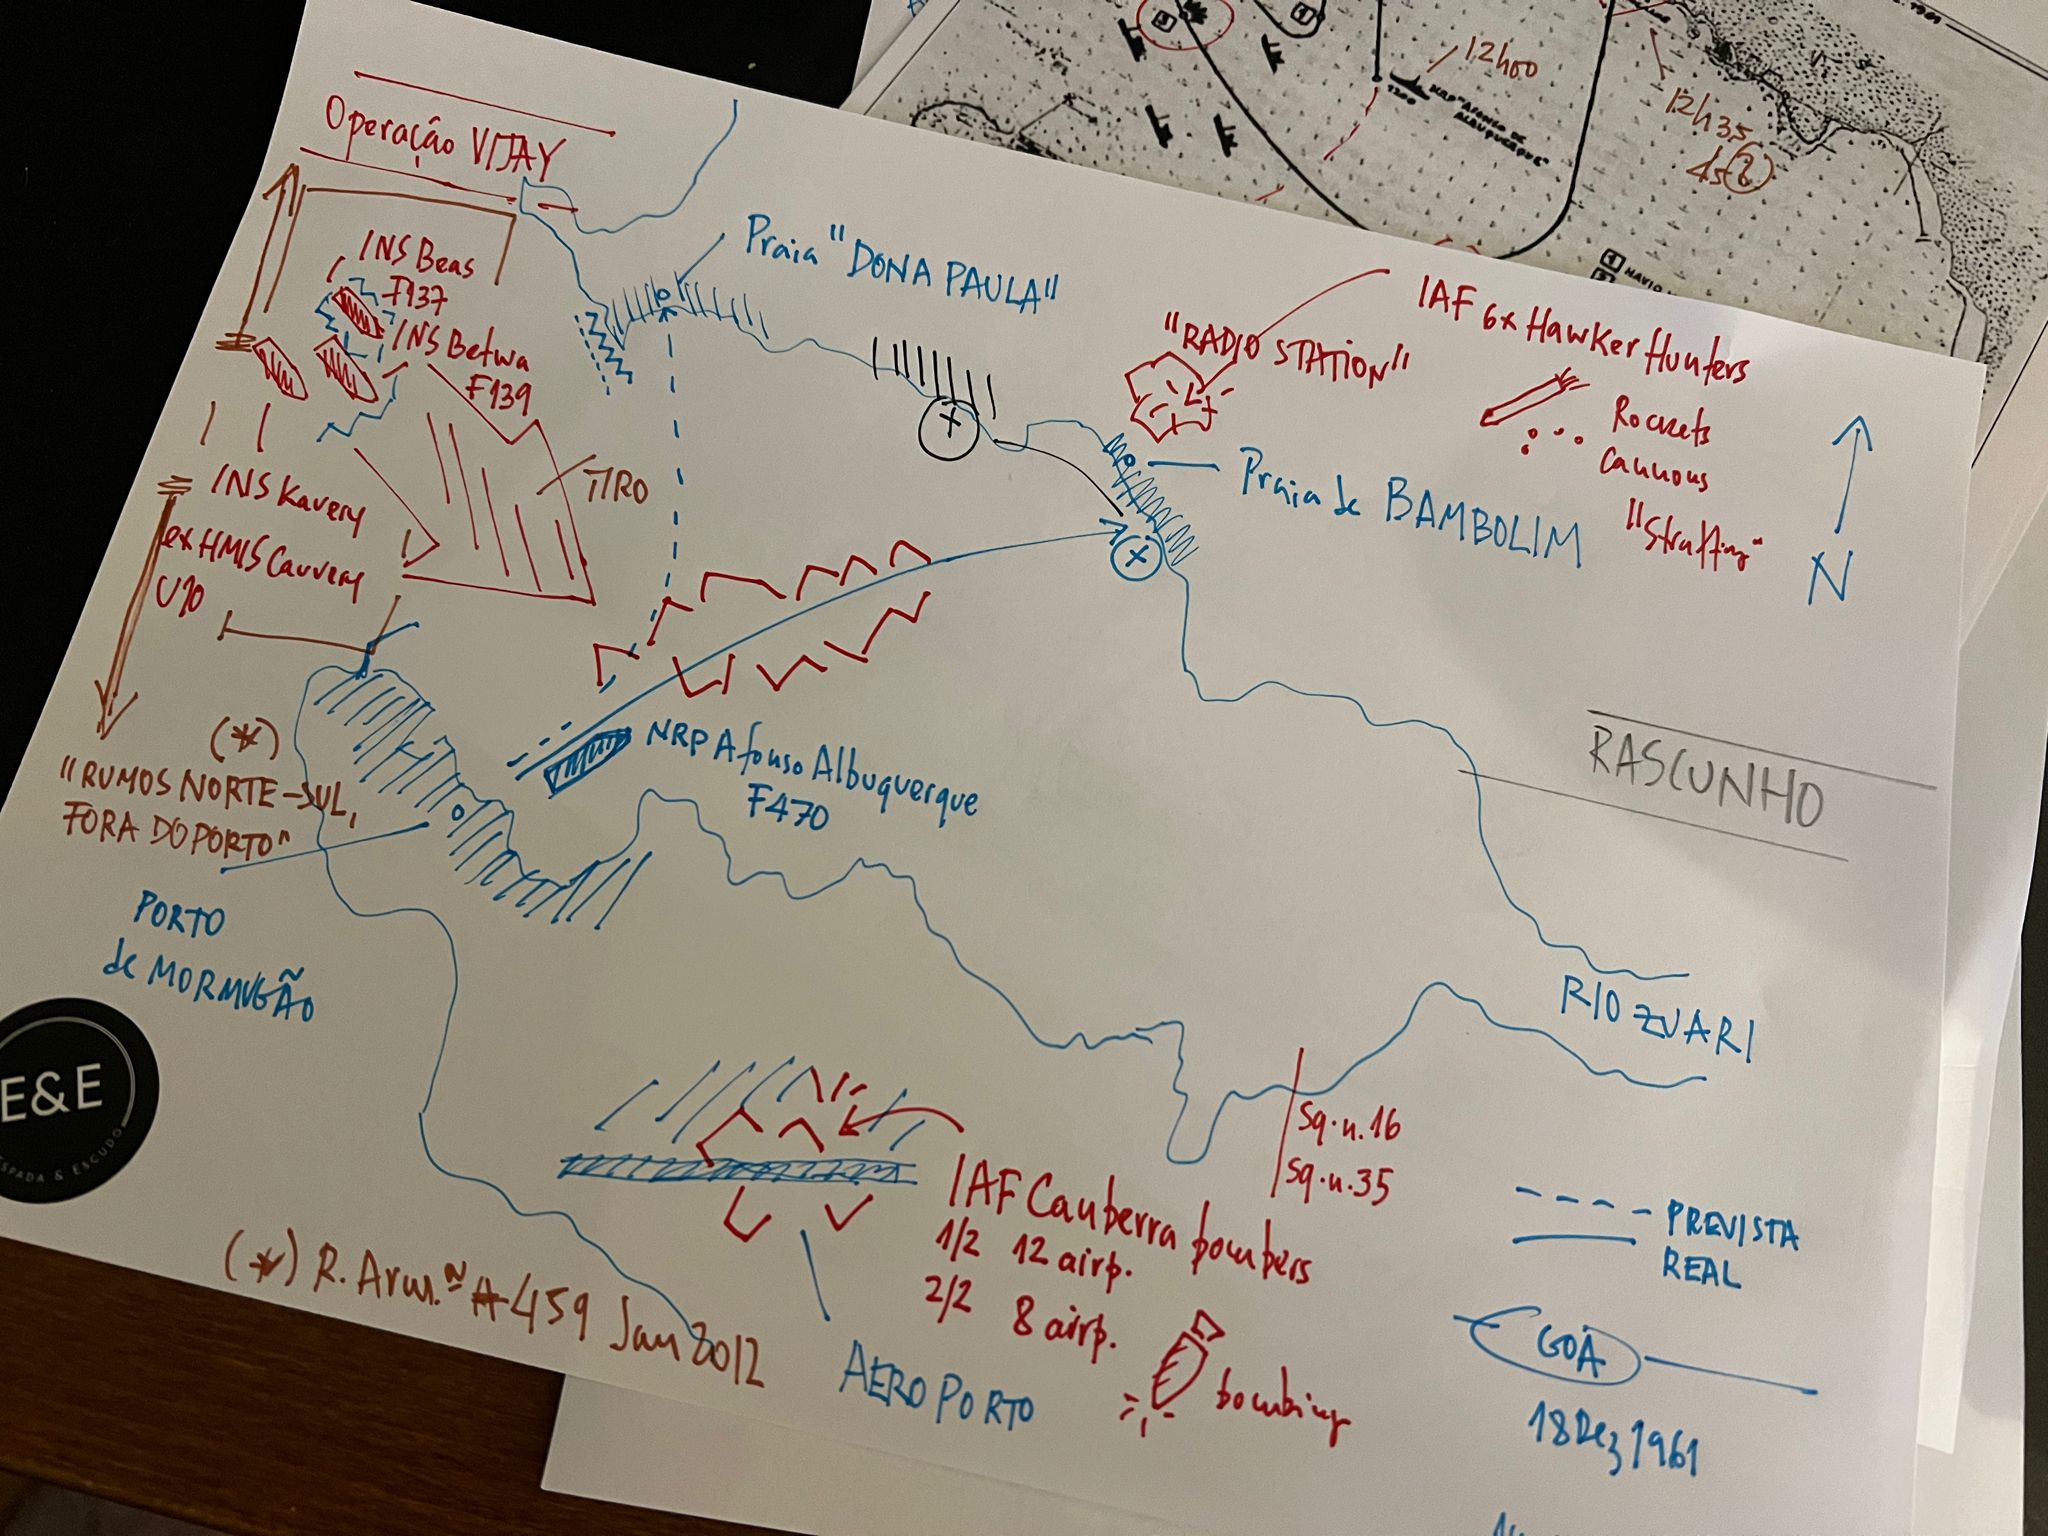 Operação VIJAY
INS Beas
F137
INS Betwa
F139
TIRO
INS Kavery
ex HMIS Cauvery
U10
(*)
"RUMOS NORTE-SUL,
FORA DO PORTO"
PORTO
de MORMUGÃO
Praia "DONA PAULA"
"RADIO STATION"
IAF 6x Hawker Hunters
Rockets
Cannons
"Straffing"
Praia de BAMBOLIM
N
NRP Afonso Albuquerque
F470
RASCUNHO
RIO ZUARI
Sq. n. 16
Sq. n. 35
IAF Canberra bombers
1/2 12 airp.
2/2 8 airp.
bombing
AEROPORTO
PREVISTA
REAL
GOA
18 Dez 1961
(*) R. Arm.ª #459 Jan 2012
E&E
ESPADA & ESCUDO
12h00
1200
NRP "AFONSO DE
ALBUQUERQUE"
12h35
1 NAVIO